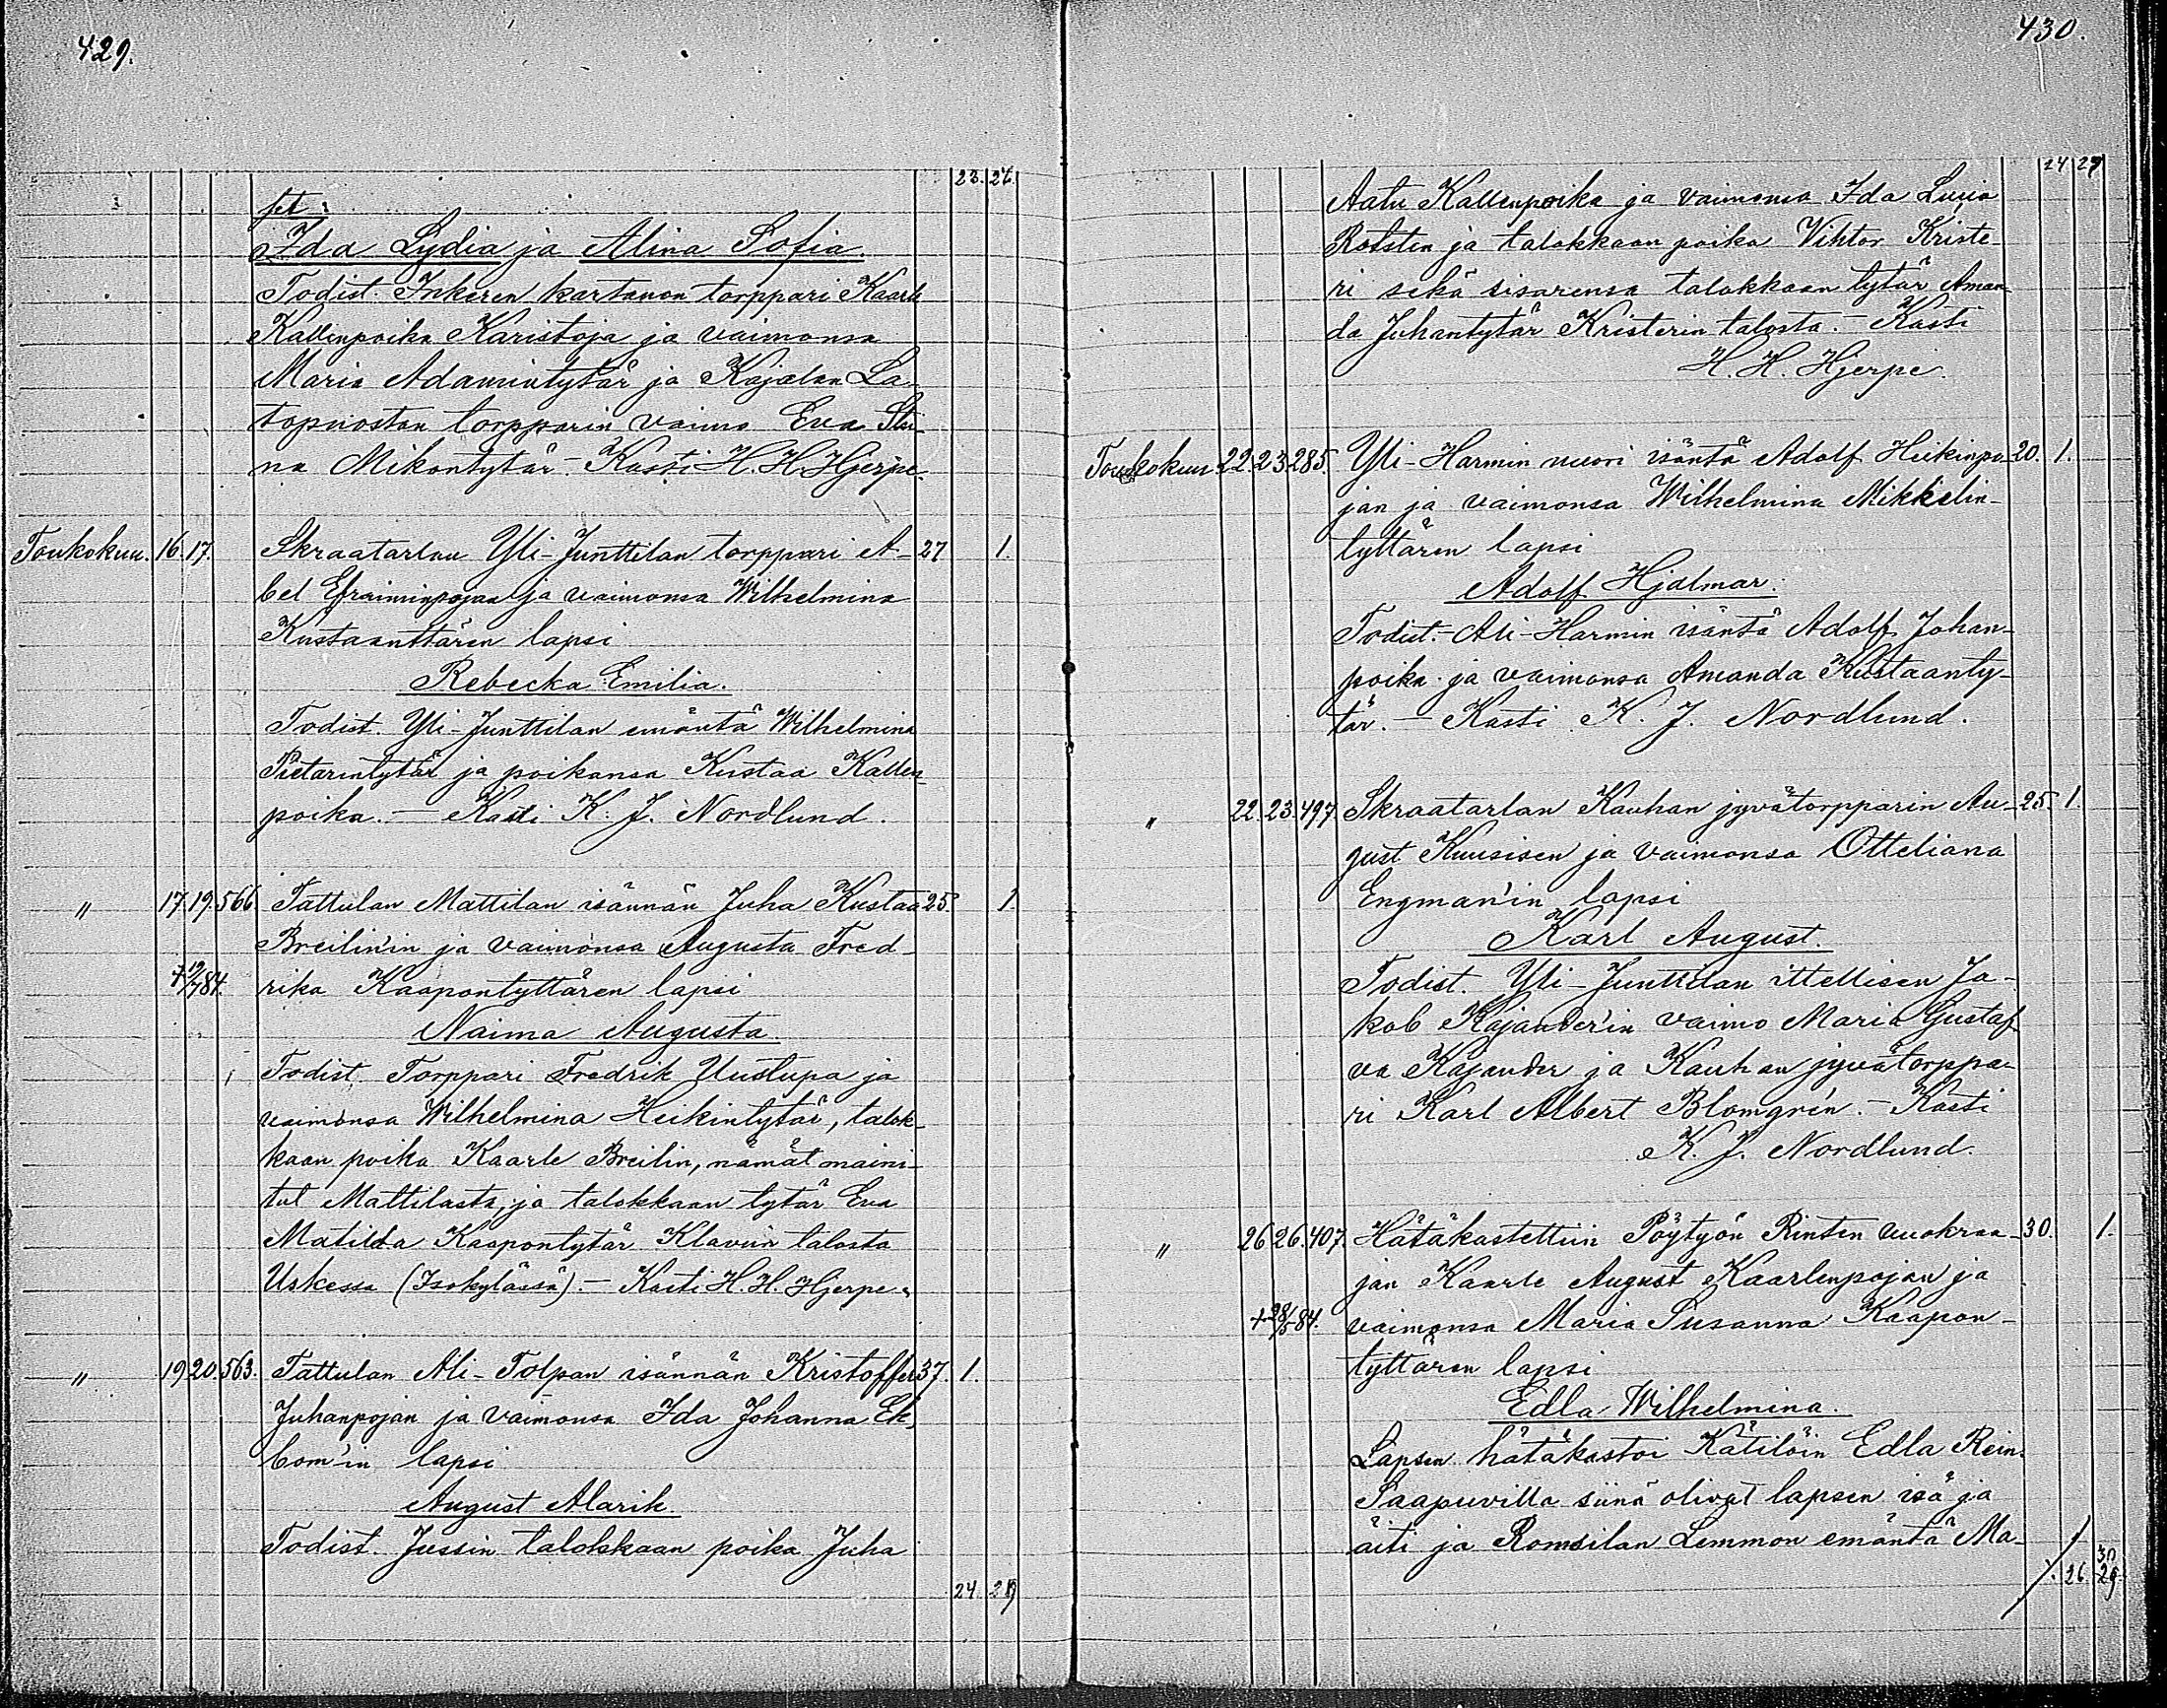 429.
23. 27.
set:
Ida Lydia ja Alina Sofia.
Todist. Inkeren kartanon torppari Kaarle
Kallenpoika Karistoja ja vaimonsa
Maria Adamintytär ja Kajalan La-
topuostan torpparin vaimo Eva Sti-
na Mikontytär. - Kasti H. H. Hjerpe.
Toukokuu. 16. 17. Skraatarlan Yli-Junttilan torppari A- 27 1.
bel Efraiminpojan ja vaimonsa Wilhelmina
Kustaanttären lapsi
Rebecka Emilia.
Todist. Yli-Junttilan emäntä Wilhelmina
Pietarintytär ja poikansa Kustaa Kallen-
poika. - Kasti K. J. Nordlund.
" 17. 19. 566. Tattulan Mattilan isännän Juha Kustaa 25. 1.
Breilin'in ja vaimonsa Augusta Fred-
+19/7 84. rika Kaapontyttären lapsi
Naima Augusta.
Todist. Torppari Fredrik Uustupa ja
vaimonsa Wilhelmina Heikintytär, talok-
kaan poika Kaarle Breilin, nämät maini-
tut Mattilasta, ja talokkaan tytär Eva
Matilda Kaapontytär Klavun talosta
Uskessa (Isokylässä). - Kasti H. H. Hjerpe.
" 19 20. 563. Tattulan Ali-Tolpan isännän Kristoffer 37. 1.
Juhanpojan ja vaimonsa Ida Johanna Ek-
bom'in lapsi
August Alarik.
Todist. Jussin talokkaan poika Juha
24. 27
430.
24 27
Aatu Kallenpoika ja vaimonsa Ida Lucia
Rotsten ja talokkaan poika Vihtor Kriste-
ri sekä sisarensa talokkaan tytär Aman-
da Juhantytär Kristerin talosta. - Kasti
H. H. Hjerpe.
Toukokuu 22. 23 285. Yli-Harmin nuori isäntä Adolf Heikinpo- 20. 1.
jan ja vaimonsa Wilhelmina Mikkelin-
tyttären lapsi
Adolf Hjalmar.
Todist. - Ali-Harmin isäntä Adolf Johan-
poika ja vaimonsa Amanda Kustaanty-
tär. - Kasti K. J. Nordlund.
" 22. 23. 497. Skraatarlan Kauhan jyvätorpparin Au- 25. 1.
gust Kuusisen ja vaimonsa Otteliana
Engman'in lapsi
Karl August.
Todist. Yli-Junttilan ittellisen Ja-
kob Kajander'in vaimo Maria Gustaf-
va Kajander ja Kauhan jyvätorppa-
ri Karl Albert Blomgrén. - Kasti
K. J. Nordlund.
" 26 26. 407. Hätäkastettiin Pöytyön Rinten vuokraa- 30. 1.
jan Kaarle August Kaarlenpojan ja
+28/5 84. vaimonsa Maria Susanna Kaapon-
tyttären lapsi
Edla Wilhelmina.
Lapsen hätäkastoi Kätilöin Edla Rein.
Saapuvilla siinä olivat lapsen isä ja
äiti ja Romsilan Lemmon emäntä Ma-
26. 29.